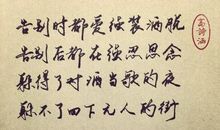 告别时都爱强装洒脱
告别后都在强忍思念
躲得了对酒当歌的夜
躲不了四下无人的街